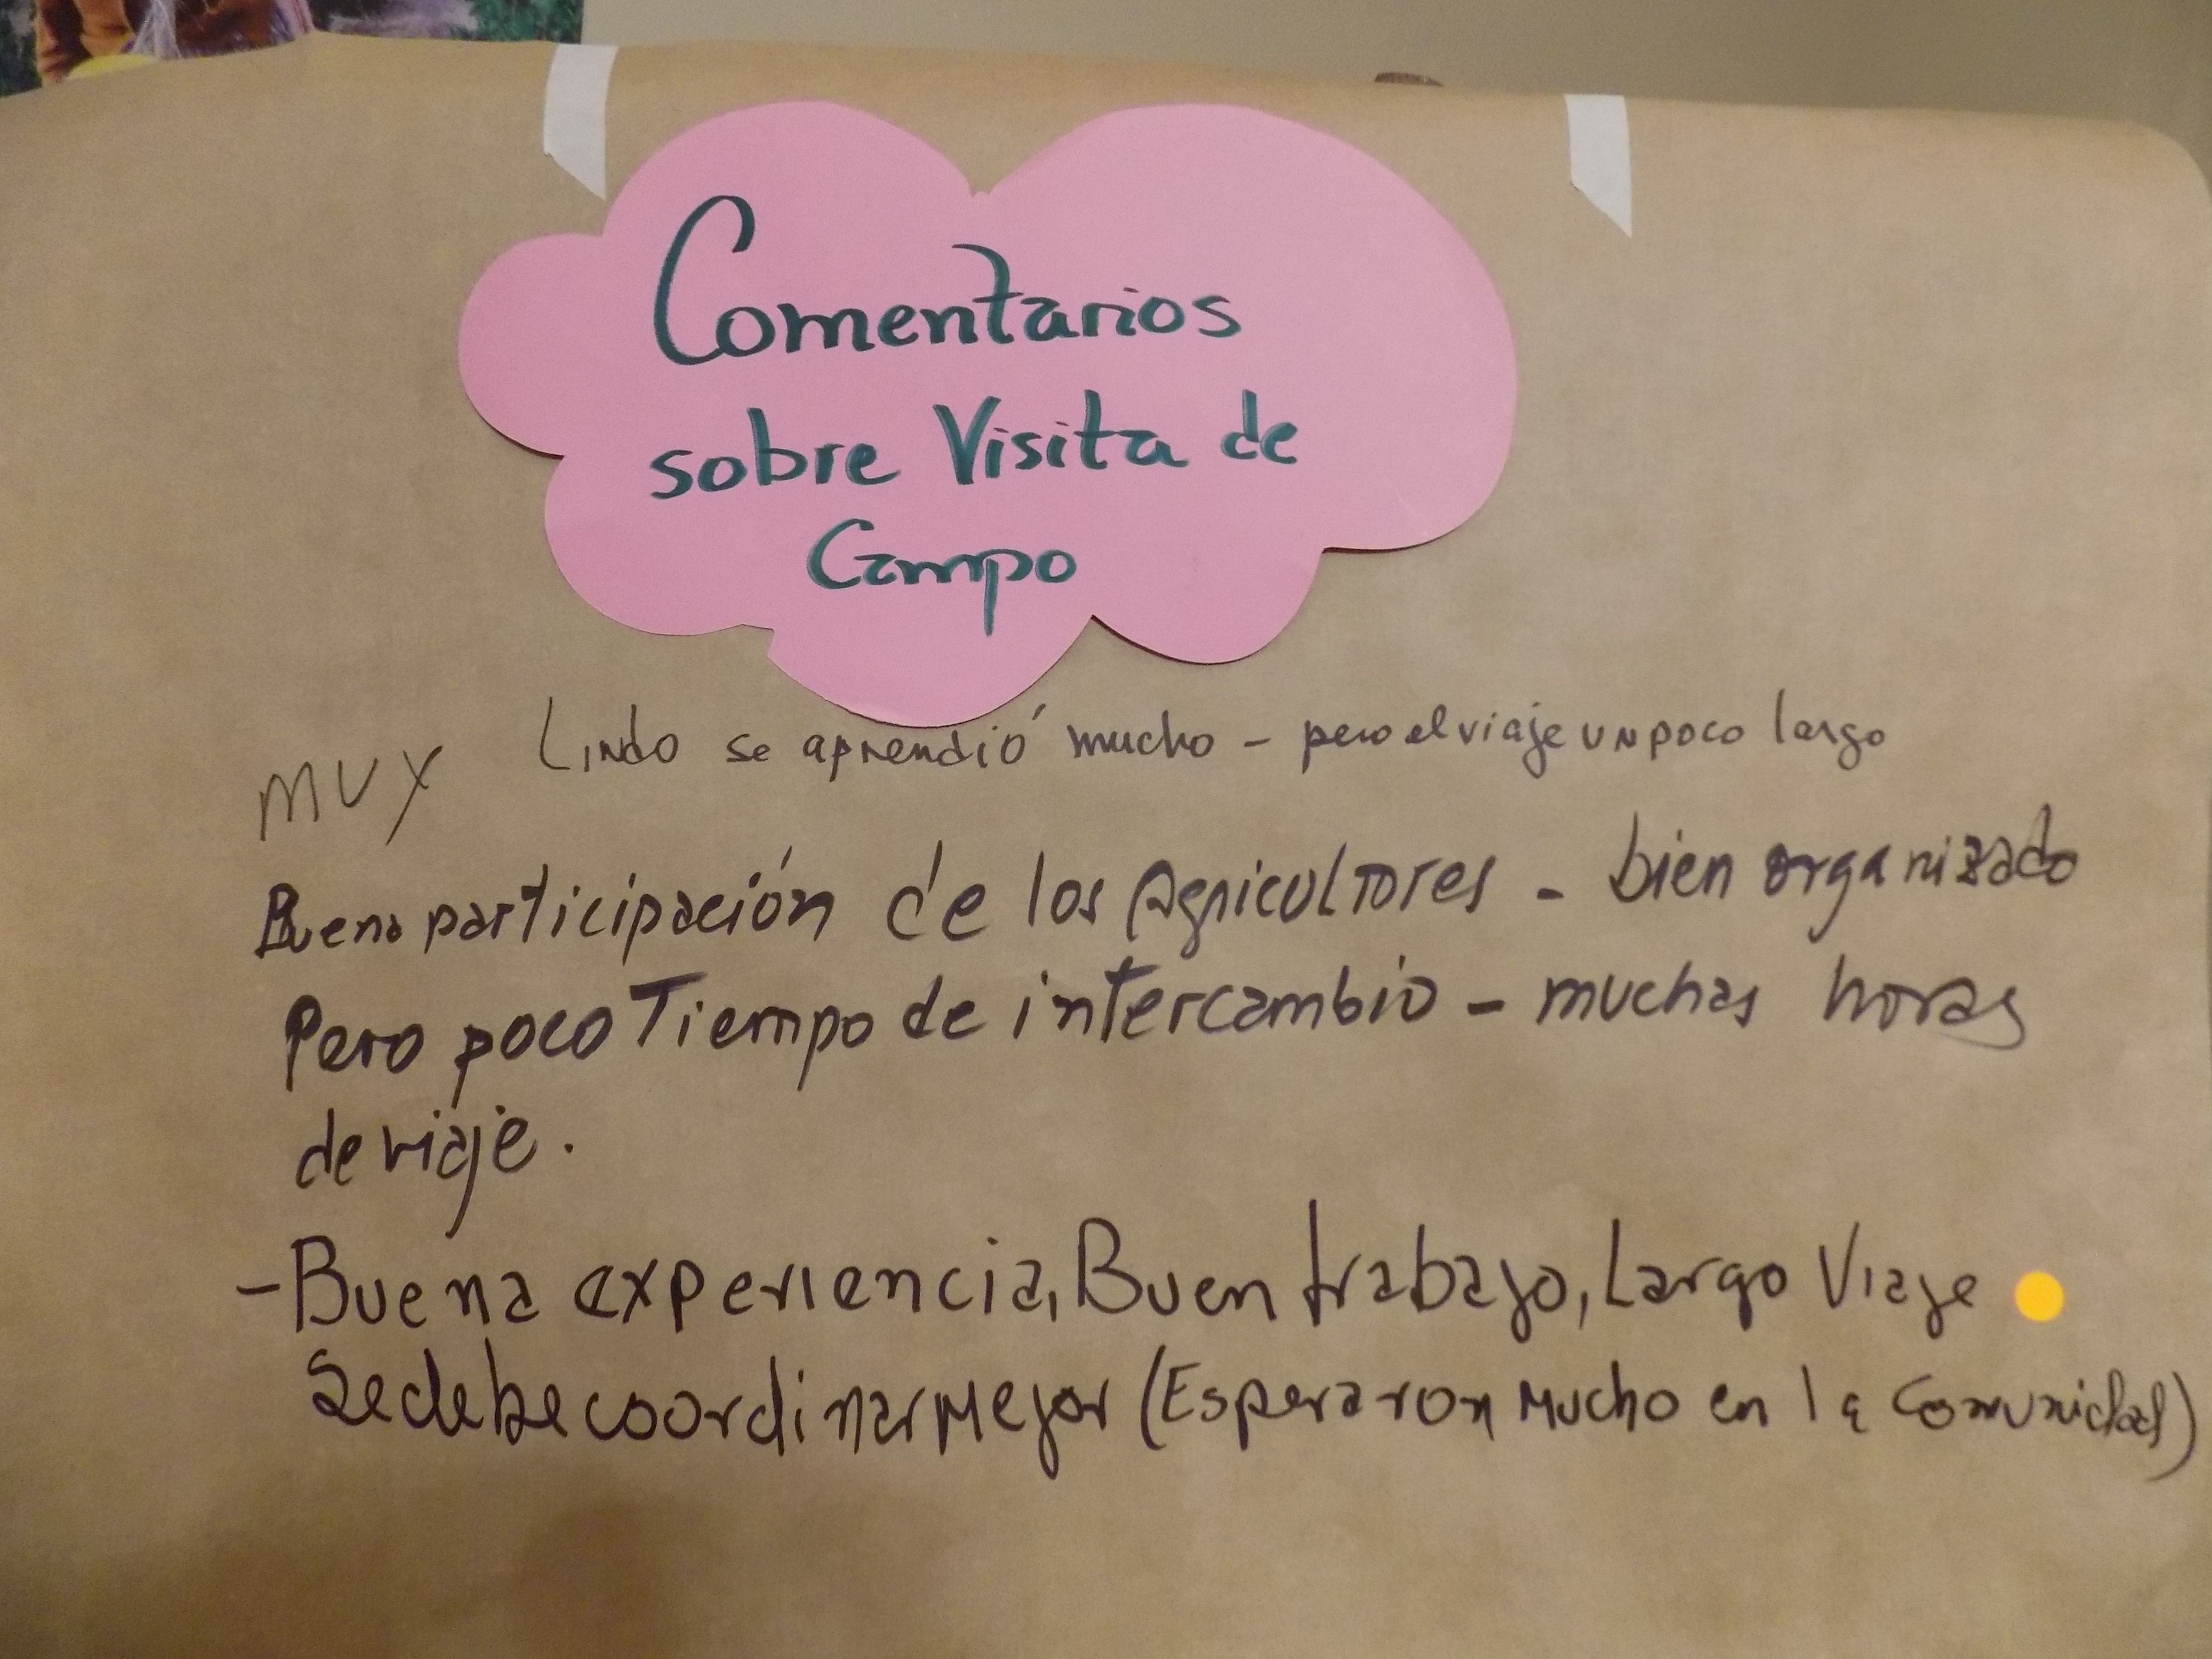 Comentarios
sobre Visita de
Campo
MUY Lindo se aprendió mucho - pero el viaje un poco largo
Buena participación de los Agricultores - bien organizado
Pero poco Tiempo de intercambio - muchas horas
de viaje.
- Buena experiencia, Buen trabajo, Largo Viaje
Se debe coordinar Mejor (Esperaron Mucho en la Comunidad)